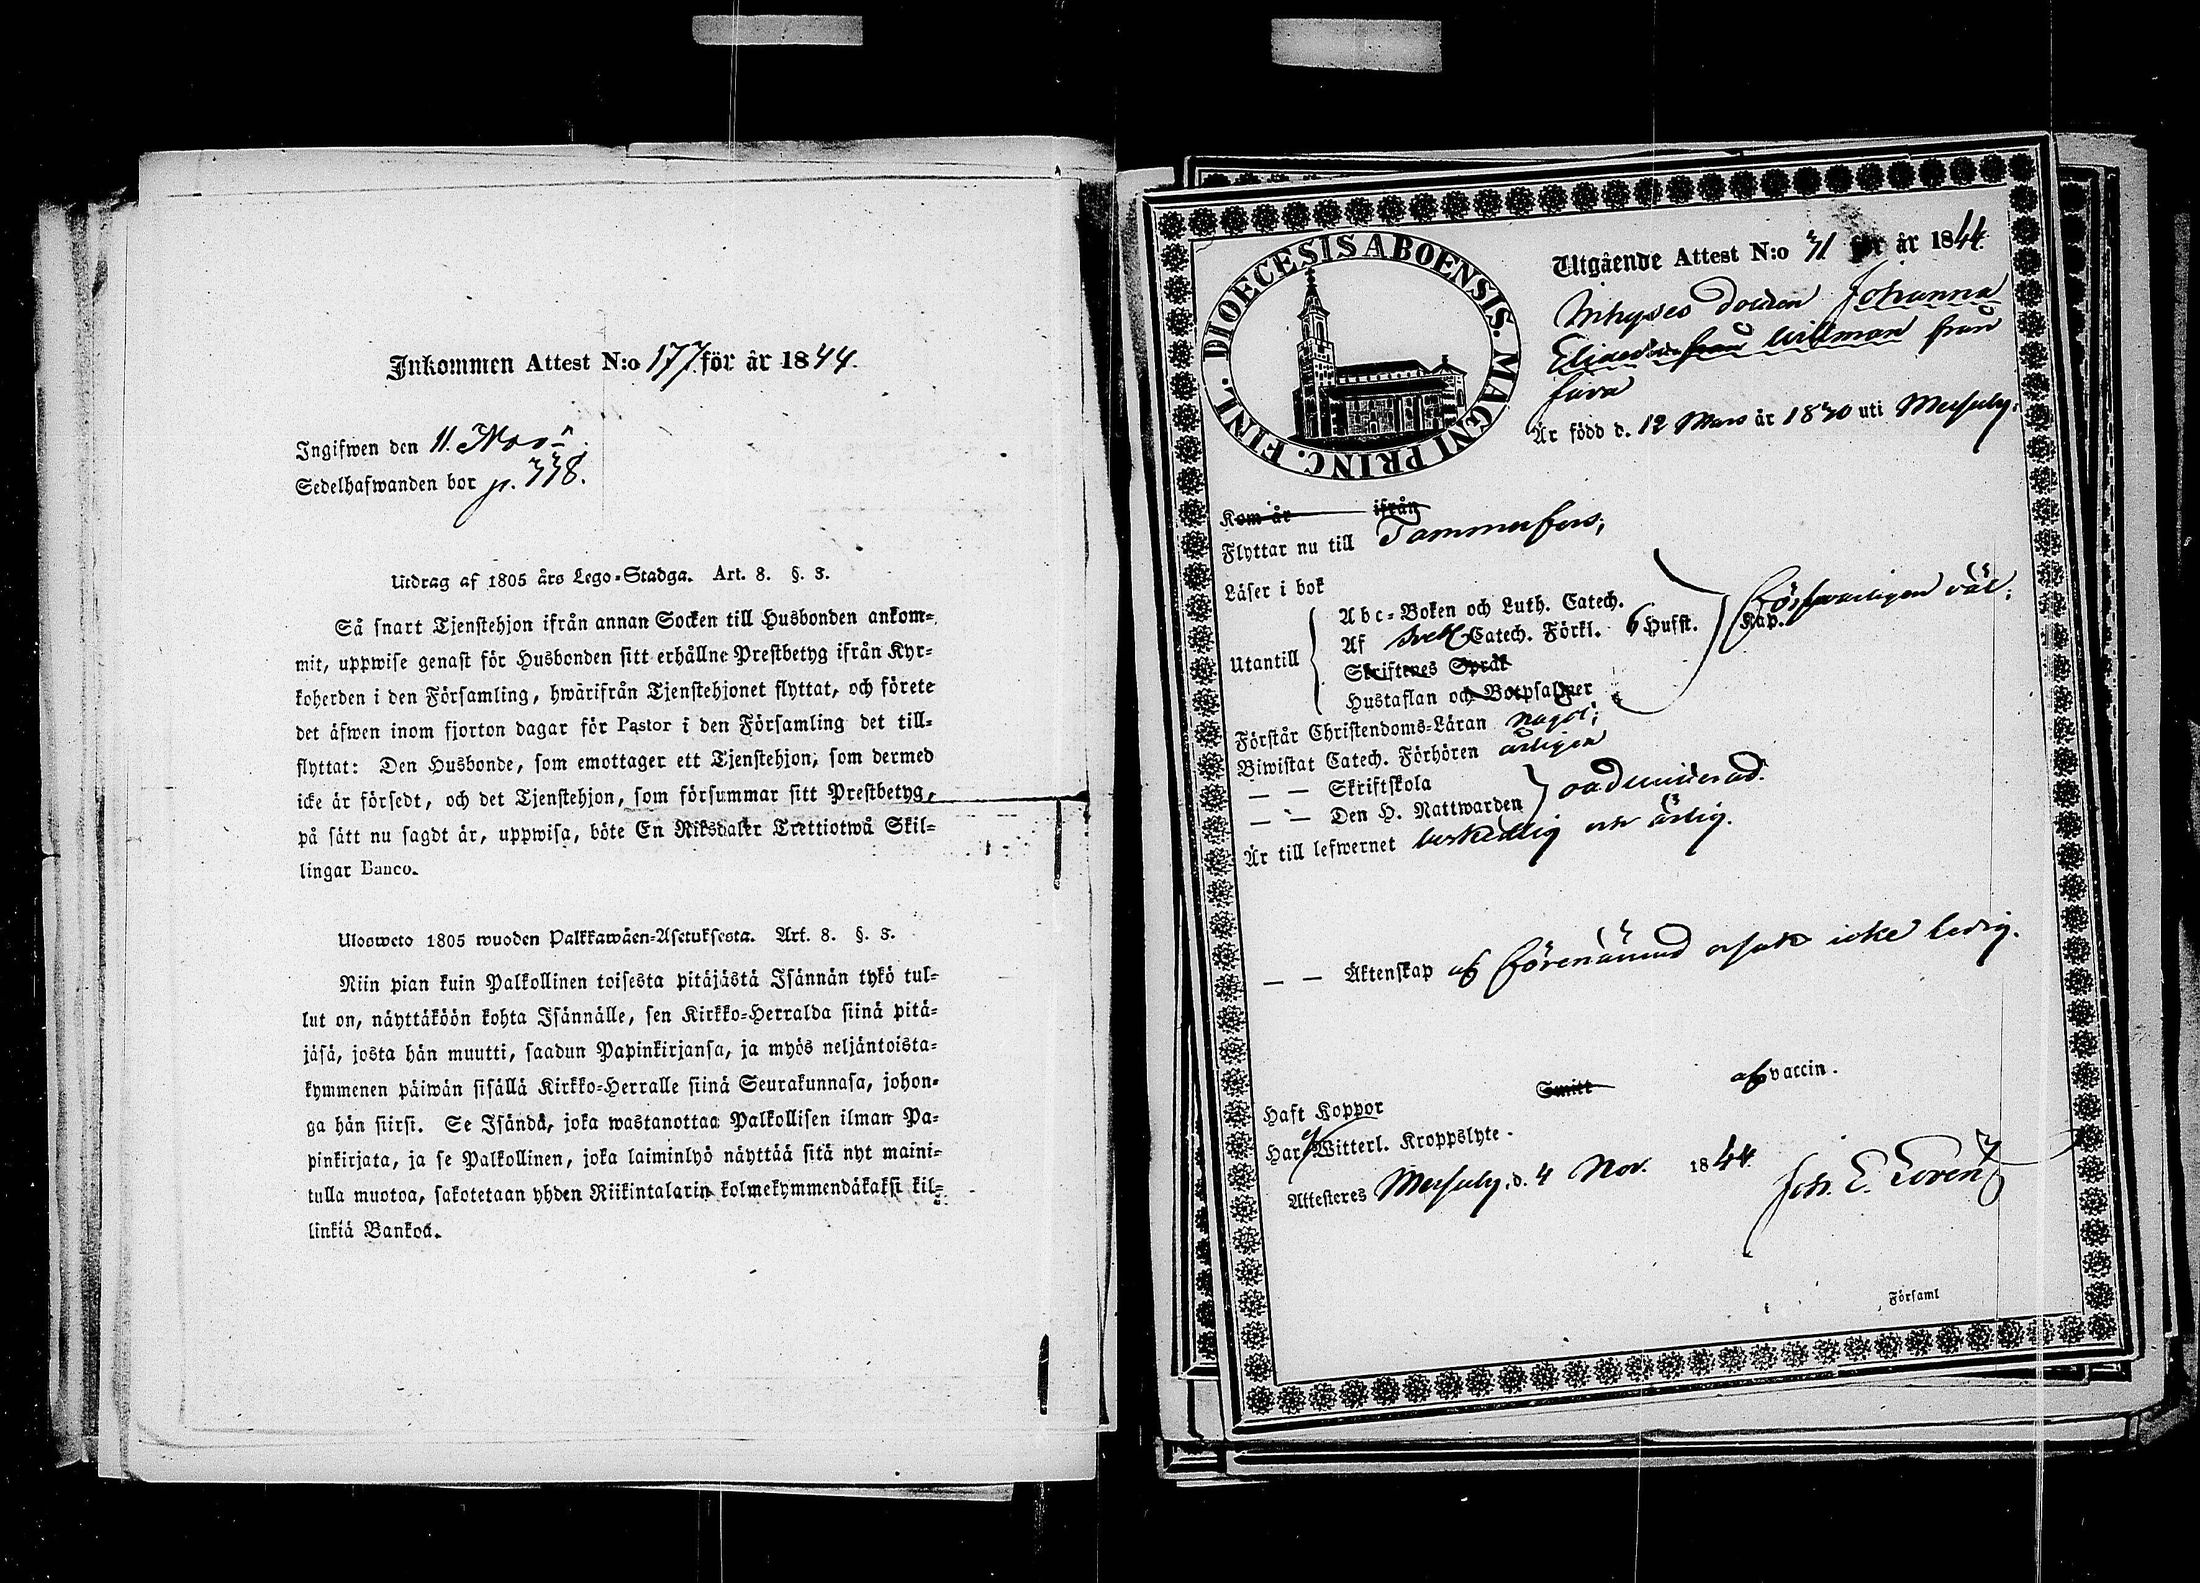 Inkommen Attest N:o 177 för år 1844.
Ingifwen den 11. Nov.
Sedelhafwanden bor p. 338.
Utdrag af 1805 års Lego-Stadga. Art. 8. §. 3.
Så snart Tjenstehjon ifrån annan Socken till Husbonden ankom-
mit, uppwise genast för Husbonden sitt erhållne Prestbetyg ifrån Kyr-
koherden i den Församling, hwärifrån Tjenstehjonet flyttat, och förete
det äfwen inom fjorton dagar för Pastor i den Församling det till-
flyttat: Den Husbonde, som emottager ett Tjenstehjon, som dermed
icke är försedt, och det Tjenstehjon, som försummar sitt Prestbetyg,
på sätt nu sagdt är, uppwisa, böte En Riksdaler Trettiotwå Skil-
lingar Banco.
Ulosweto 1805 wuoden Palkkawäen-Asetuksesta. Art. 8. §. 3.
Niin pian kuin Palkollinen toisesta pitäjästä Isännän tykö tul-
lut on, näyttäköön kohta Isännälle, sen Kirkko-Herralda siinä pitä-
jäsä, josta hän muutti, saadun Papinkirjansa, ja myös neljäntoista-
kymmenen päiwän sisällä Kirkko-Herralle siinä Seurakunnasa, johon-
ga hän siirsi. Se Isändä, joka wastanottaa Palkollisen ilman Pa-
pinkirjata, ja se Palkollinen, joka laiminlyö näyttää sitä nyt maini-
tulla muotoa, sakotetaan yhden Riikintalarin kolmekymmendäkaksi kil-
linkiä Bankoa.
DIOECESIS ABOENSIS. MAGNI PRINC. FINL.
Utgående Attest N:o 31 för år 1844.
Inhyses Johanna
Willman från
Är född d. 12 Mars år 1830 uti
Kom år ifrån
Flyttar nu till Tammerfors,
Läser i bok
Abc-Boken och Luth. Catech.
Utantill Af Catech. Förkl. 6 Hufst. Kap. försvarligen väl;
Skriftenes Språk
Hustaflan och Botpsalmer
Förstår Christendoms-Läran något;
Biwistat Catech. Förhören årligen
— — Skriftskola
— — Den H. Nattwarden oadmitterad.
Är till lefwernet beskedlig och ärlig.
— — Äktenskap af förenämnd orsak icke ledig.
Haft Koppor Smitt af vaccin.
Har ej Witterl. Kroppslyte.
Attesteres d. 4 Nov. 1844. Joh. E.
i Församl